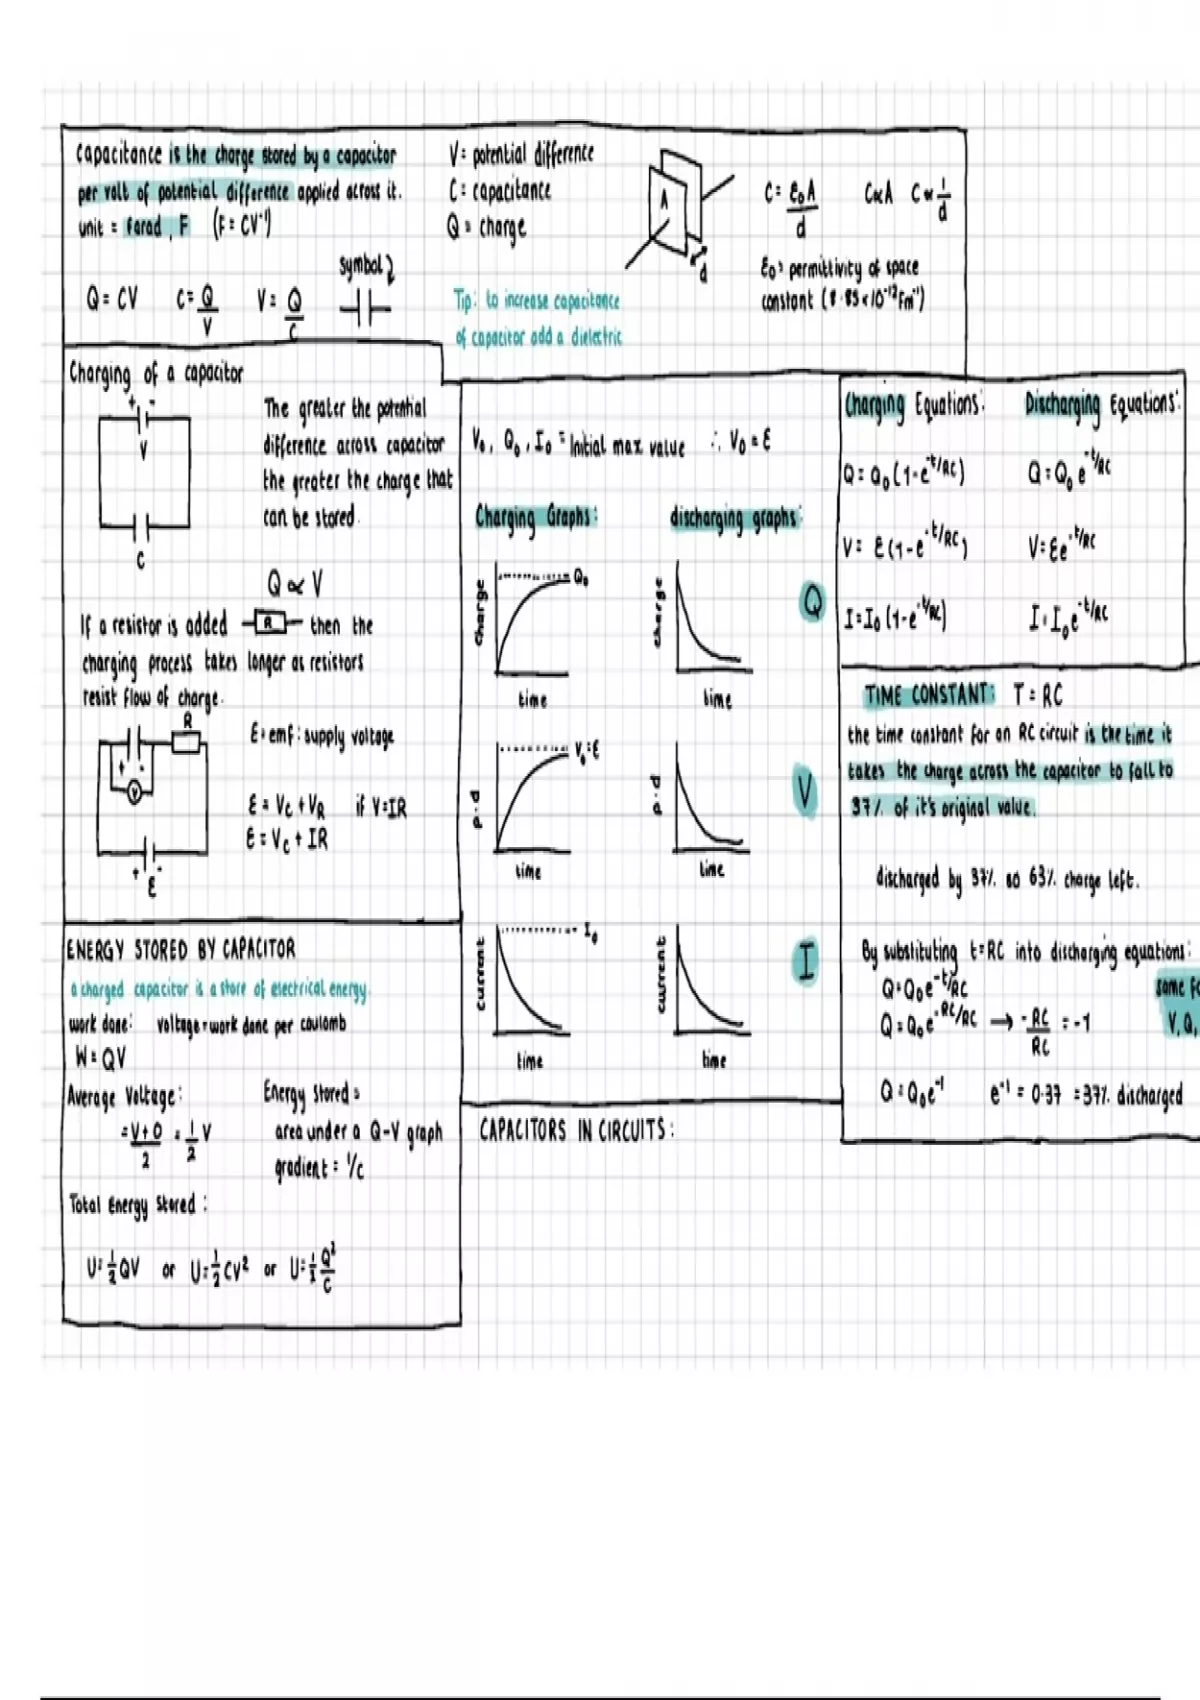 Capacitance is the charge stored by a capacitor
per volt of potential difference applied across it.
unit = farad, F (F = CV⁻¹)
symbol
Q = CV C = Q/V V = Q/C
V = potential difference
C = capacitance
Q = charge
Tip: to increase capacitance
of capacitor add a dielectric
A
d
C = ε₀A/d C∝A C∝1/d
ε₀ = permittivity of space
constant (8.85×10⁻¹²Fm⁻¹)
Charging of a capacitor
+ -
V
C
The greater the potential
difference across capacitor
the greater the charge that
can be stored.
Q ∝ V
If a resistor is added R then the
charging process takes longer as resistors
resist flow of charge.
R
+ -
V
+ -
ε
ε = emf: supply voltage
ε = Vc + VR if V=IR
ε = Vc + IR
ENERGY STORED BY CAPACITOR
a charged capacitor is a store of electrical energy.
work done: voltage = work done per coulomb
W = QV
Average Voltage:
= V+0/2 = 1/2 V
Energy Stored =
area under a Q-V graph
gradient = 1/C
Total Energy Stored:
U = 1/2 QV or U = 1/2 CV² or U = 1/2 Q²/C
V₀, Q₀, I₀ = Initial max value ∴ V₀ = ε
Charging Graphs: discharging graphs:
charge
Q₀
time
charge
time
Q
p.d
V₀ = ε
time
p.d
time
V
current
I₀
time
current
time
I
CAPACITORS IN CIRCUITS:
Charging Equations: Discharging Equations:
Q = Q₀(1-e^-t/RC) Q = Q₀e^-t/RC
V = ε(1-e^-t/RC) V = εe^-t/RC
I = I₀(1-e^-t/RC) I = I₀e^-t/RC
TIME CONSTANT: T = RC
the time constant for an RC circuit is the time it
takes the charge across the capacitor to fall to
37% of it's original value.
discharged by 37% so 63% charge left.
By substituting t=RC into discharging equations:
Q = Q₀e^-t/RC
Q = Q₀e^-RC/RC → -RC/RC = -1
same fo
V, Q,
Q = Q₀e⁻¹ e⁻¹ = 0.37 = 37% discharged